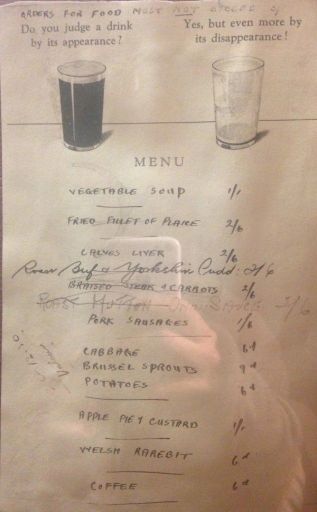 ORDERS FOR FOOD MUST NOT
Do you judge a drink
by its appearance?
Yes, but even more by
its disappearance!
MENU
VEGETABLE SOUP 1/1
FRIED FILLET OF PLAICE 2/6
CALVES LIVER 2/6
Roast Beef & Yorkshire Pudd: 2/6
BRAISED STEAK & CARROTS 2/6
ROAST MUTTON ONION SAUCE 2/6
PORK SAUSAGES 1/6
CABBAGE 6d
BRUSSEL SPROUTS 9d
POTATOES 6d
APPLE PIE & CUSTARD 1/1
WELSH RAREBIT 6d
COFFEE 6d